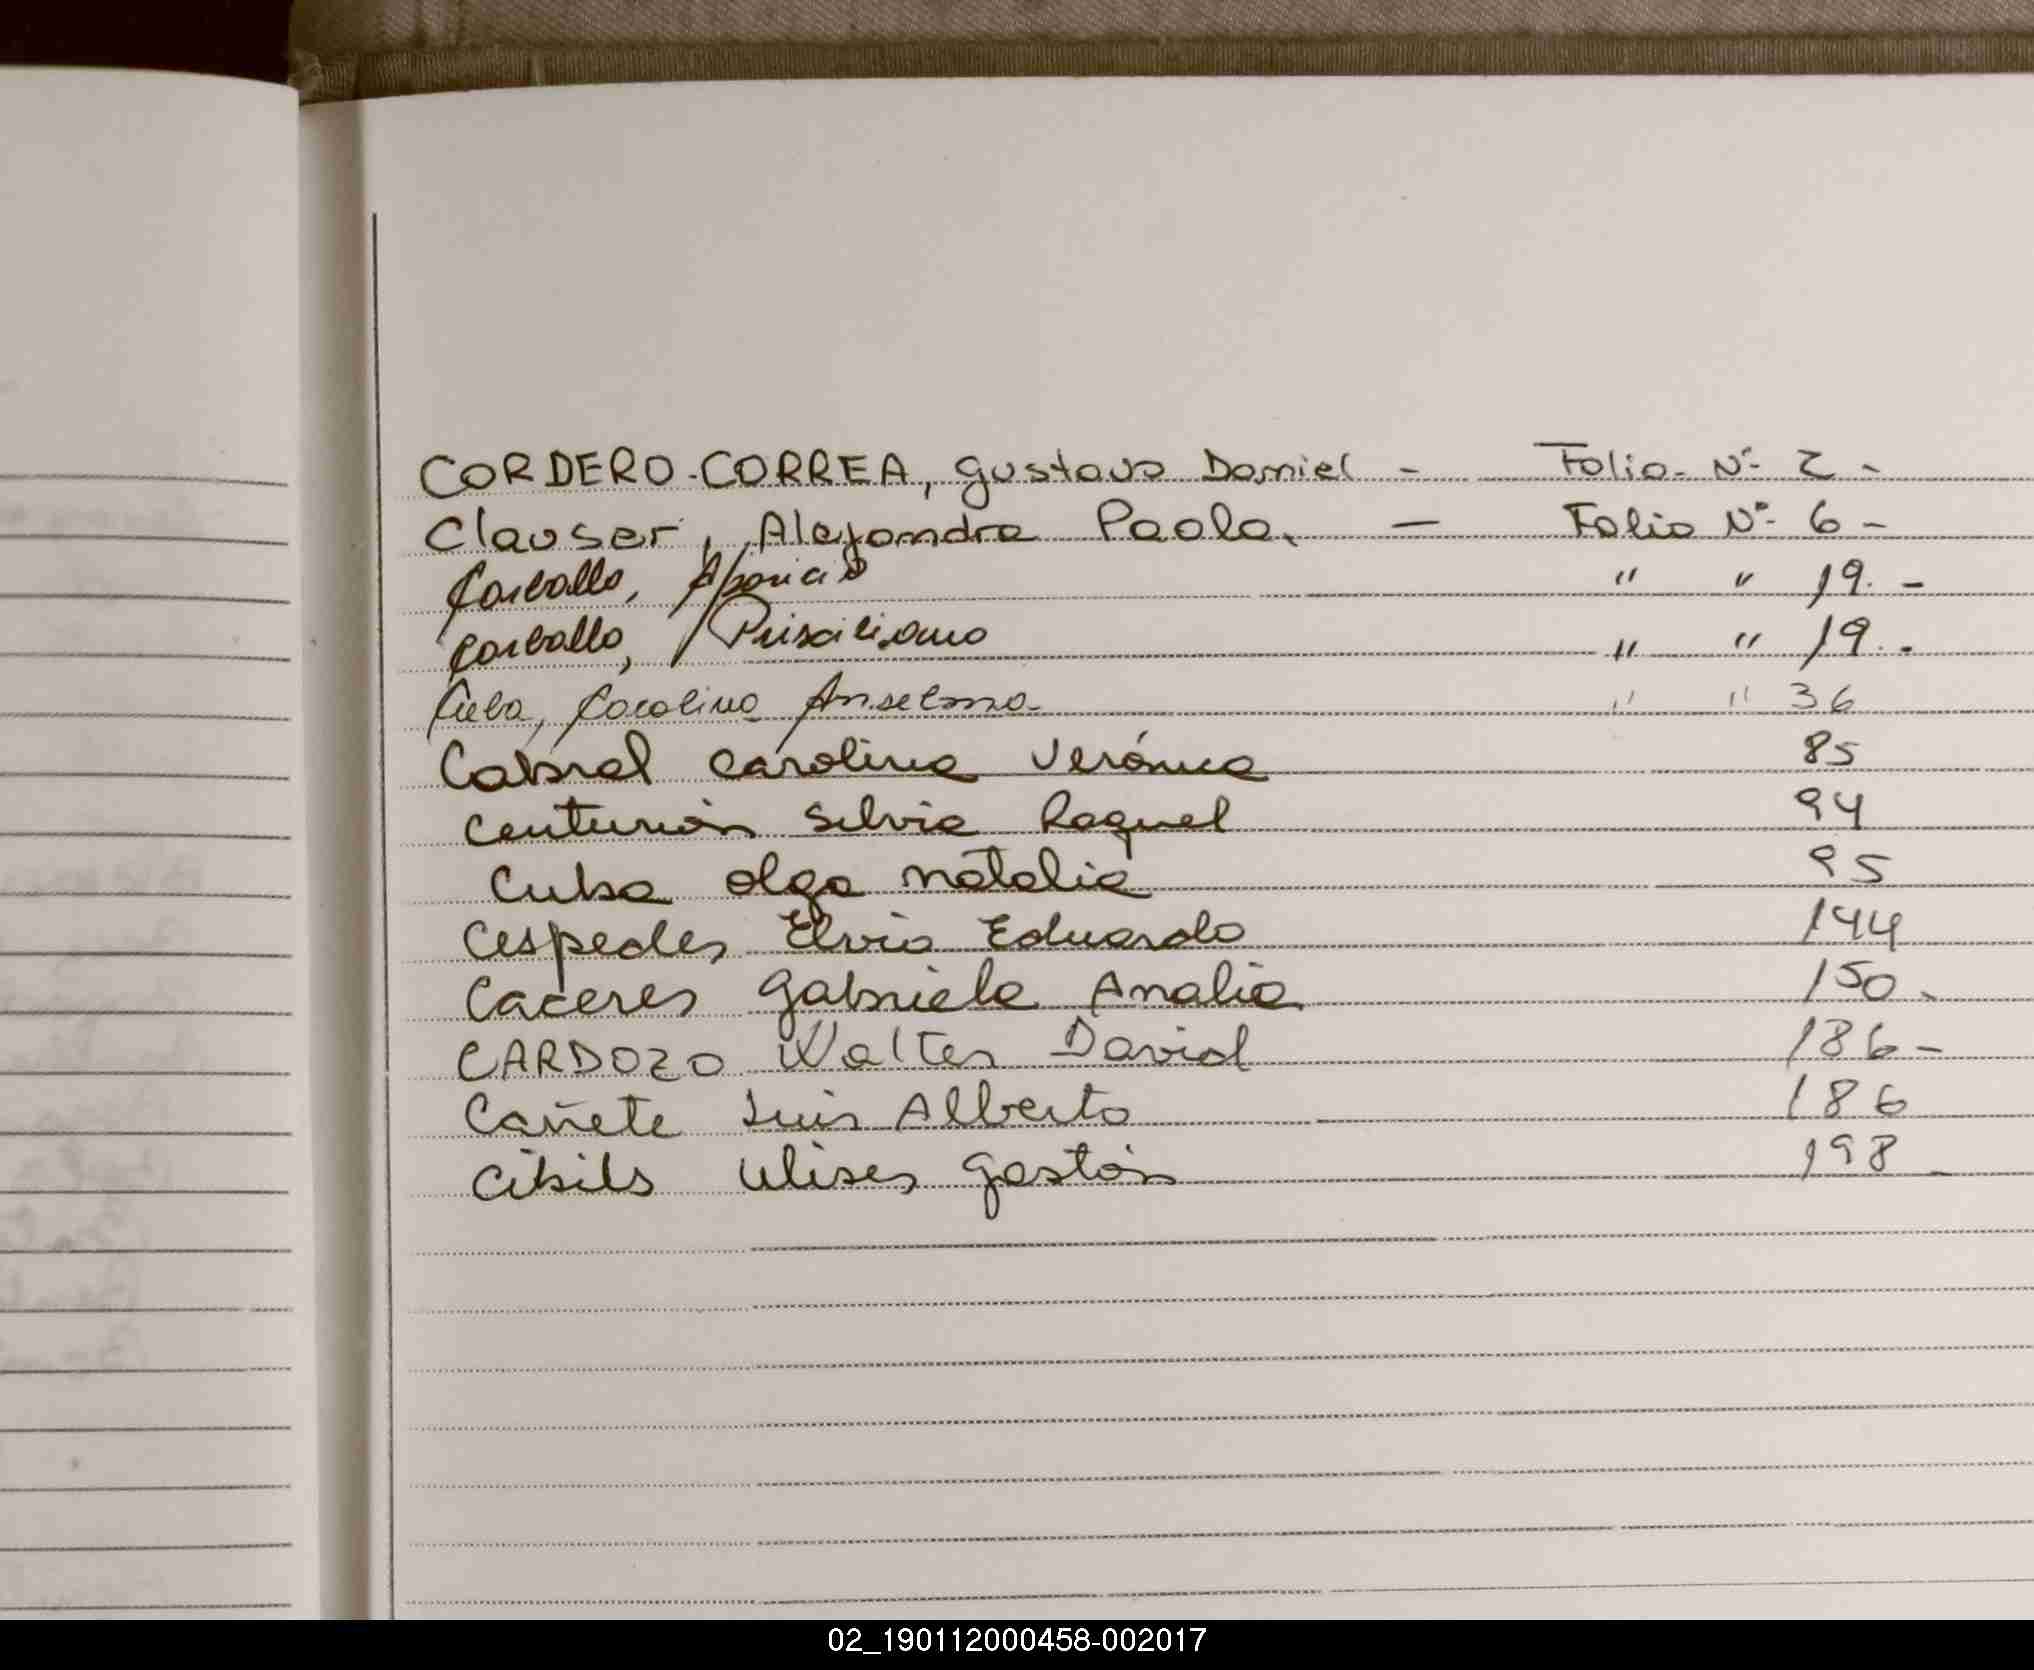 CORDERO-CORREA, Gustavo Daniel - Folio - Nº- 2 -
Clauser, Alejandra Paola. — Folio Nº- 6 -
Carballo, Aparicio " " 19. -
Carballo, Prisciliano " " 19. -
Cuba, Carolina Anselma - " " 36
Cabral Carolina Verónica 85
Centurión Silvia Raquel 94
Cuba Olga Natalia 95
Cespedes Elvio Eduardo 144
Caceres Gabriela Analia 150.
CARDOZO Walter David 186 -
Cañete Luis Alberto 186
Cibils Ulises Gastón 198 -
02_190112000458-002017